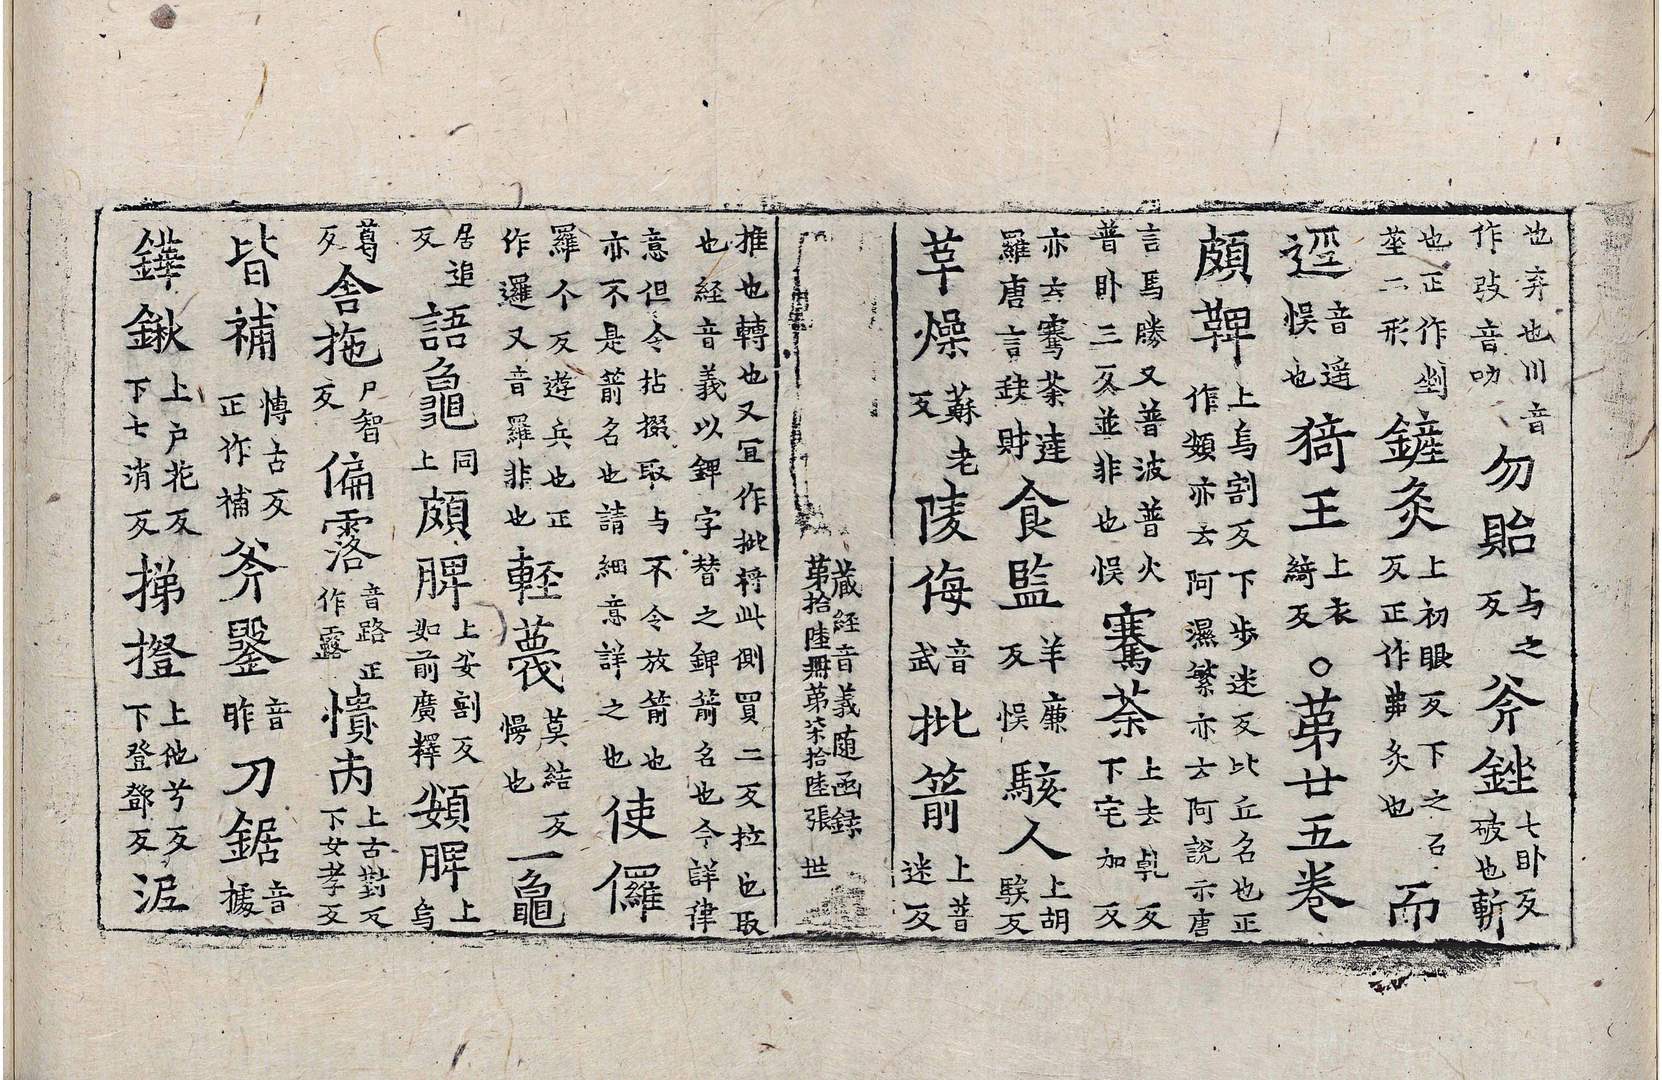 也弃也川音作𢻃音叻勿貽与之反斧銼七卧反破也斬
也正作剉莝二形鑱灸上初眼反下之右反正作弗灸也而
逕音遥悞也猗王上衣綺反○苐廿五卷
頞鞞上烏割反下步迷反比丘名也正作頞亦云阿濕繁亦云阿說示唐
言馬勝又普波普火普卧三反並非也悞騫荼上去乹反下宅加反
亦云騫荼達羅唐言𡙇財食監羊廉反悞駭人上胡騃反
草燥蘇老反陵侮音武批箭上普迷反
藏經音義随函録
苐拾陸冊苐柒拾陸張 世
推也轉也又宜作批㭰此側買二反拉也取
也経音義以錍字替之錍箭名也今詳律
意但令拈掇取与不令放箭也亦不是箭名也請細意詳之也使儸
羅个反遊兵也正作邏又音羅非也輕蔑莫結反慢也一龜
居追反語龜同上頞脾上安割反如前廣釋頞脾上烏
葛反舍拖尸智反偏𩂣音路正作露憒丙上古對反下女孝反
皆補愽古反正作補斧鋻音昨刀鋸音據
鏵鍬上户花反下七消反挮撜上他兮反下登鄧反泥